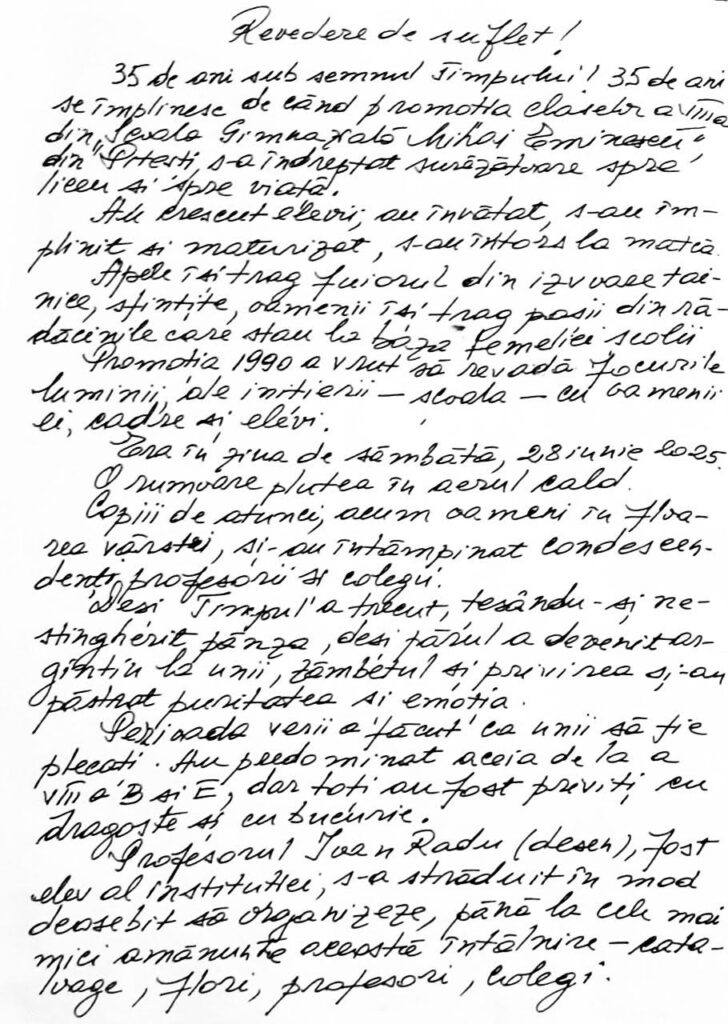 Revedere de suflet!
35 de ani sub semnul Timpului! 35 de ani
se împlinesc de când promoția claselor a VIIIa
din Școala Gimnazială "Mihai Eminescu"
din Pitești s-a îndreptat surâzătoare spre
liceu și spre viață.
Au crescut elevii, au învățat, s-au îm-
plinit și maturizat, s-au întors la matcă.
Apele își trag fuiorul din izvoare tai-
nice, sfințite, oamenii își trag pașii din ră-
dăcinile care stau la baza temeliei școlii
Promoția 1990 a vrut să revadă focurile
luminii, ale inițierii – școala – cu oamenii
ei, cadre și elevi.
Era în ziua de sâmbătă, 28 iunie 2025.
O rumoare plutea în aerul cald.
Copiii de atunci, acum oameni în floa-
rea vârstei, și-au întâmpinat condescen-
denți profesorii și colegii.
Deși Timpul a trecut, țesându-și ne-
stingherit pânza, deși părul a devenit ar-
gintiu la unii, zâmbetul și privirea și-au
păstrat puritatea și emoția.
Perioada verii a făcut ca unii să fie
plecați. Au predominat aceia de la a
VIII a B și E, dar toți au fost priviți cu
dragoste și cu bucurie.
Profesorul Ivan Radu (desen), fost
elev al instituției, s-a străduit în mod
deosebit să organizeze, până la cele mai
mici amănunte această întâlnire – cata-
loage, flori, profesori, colegi.